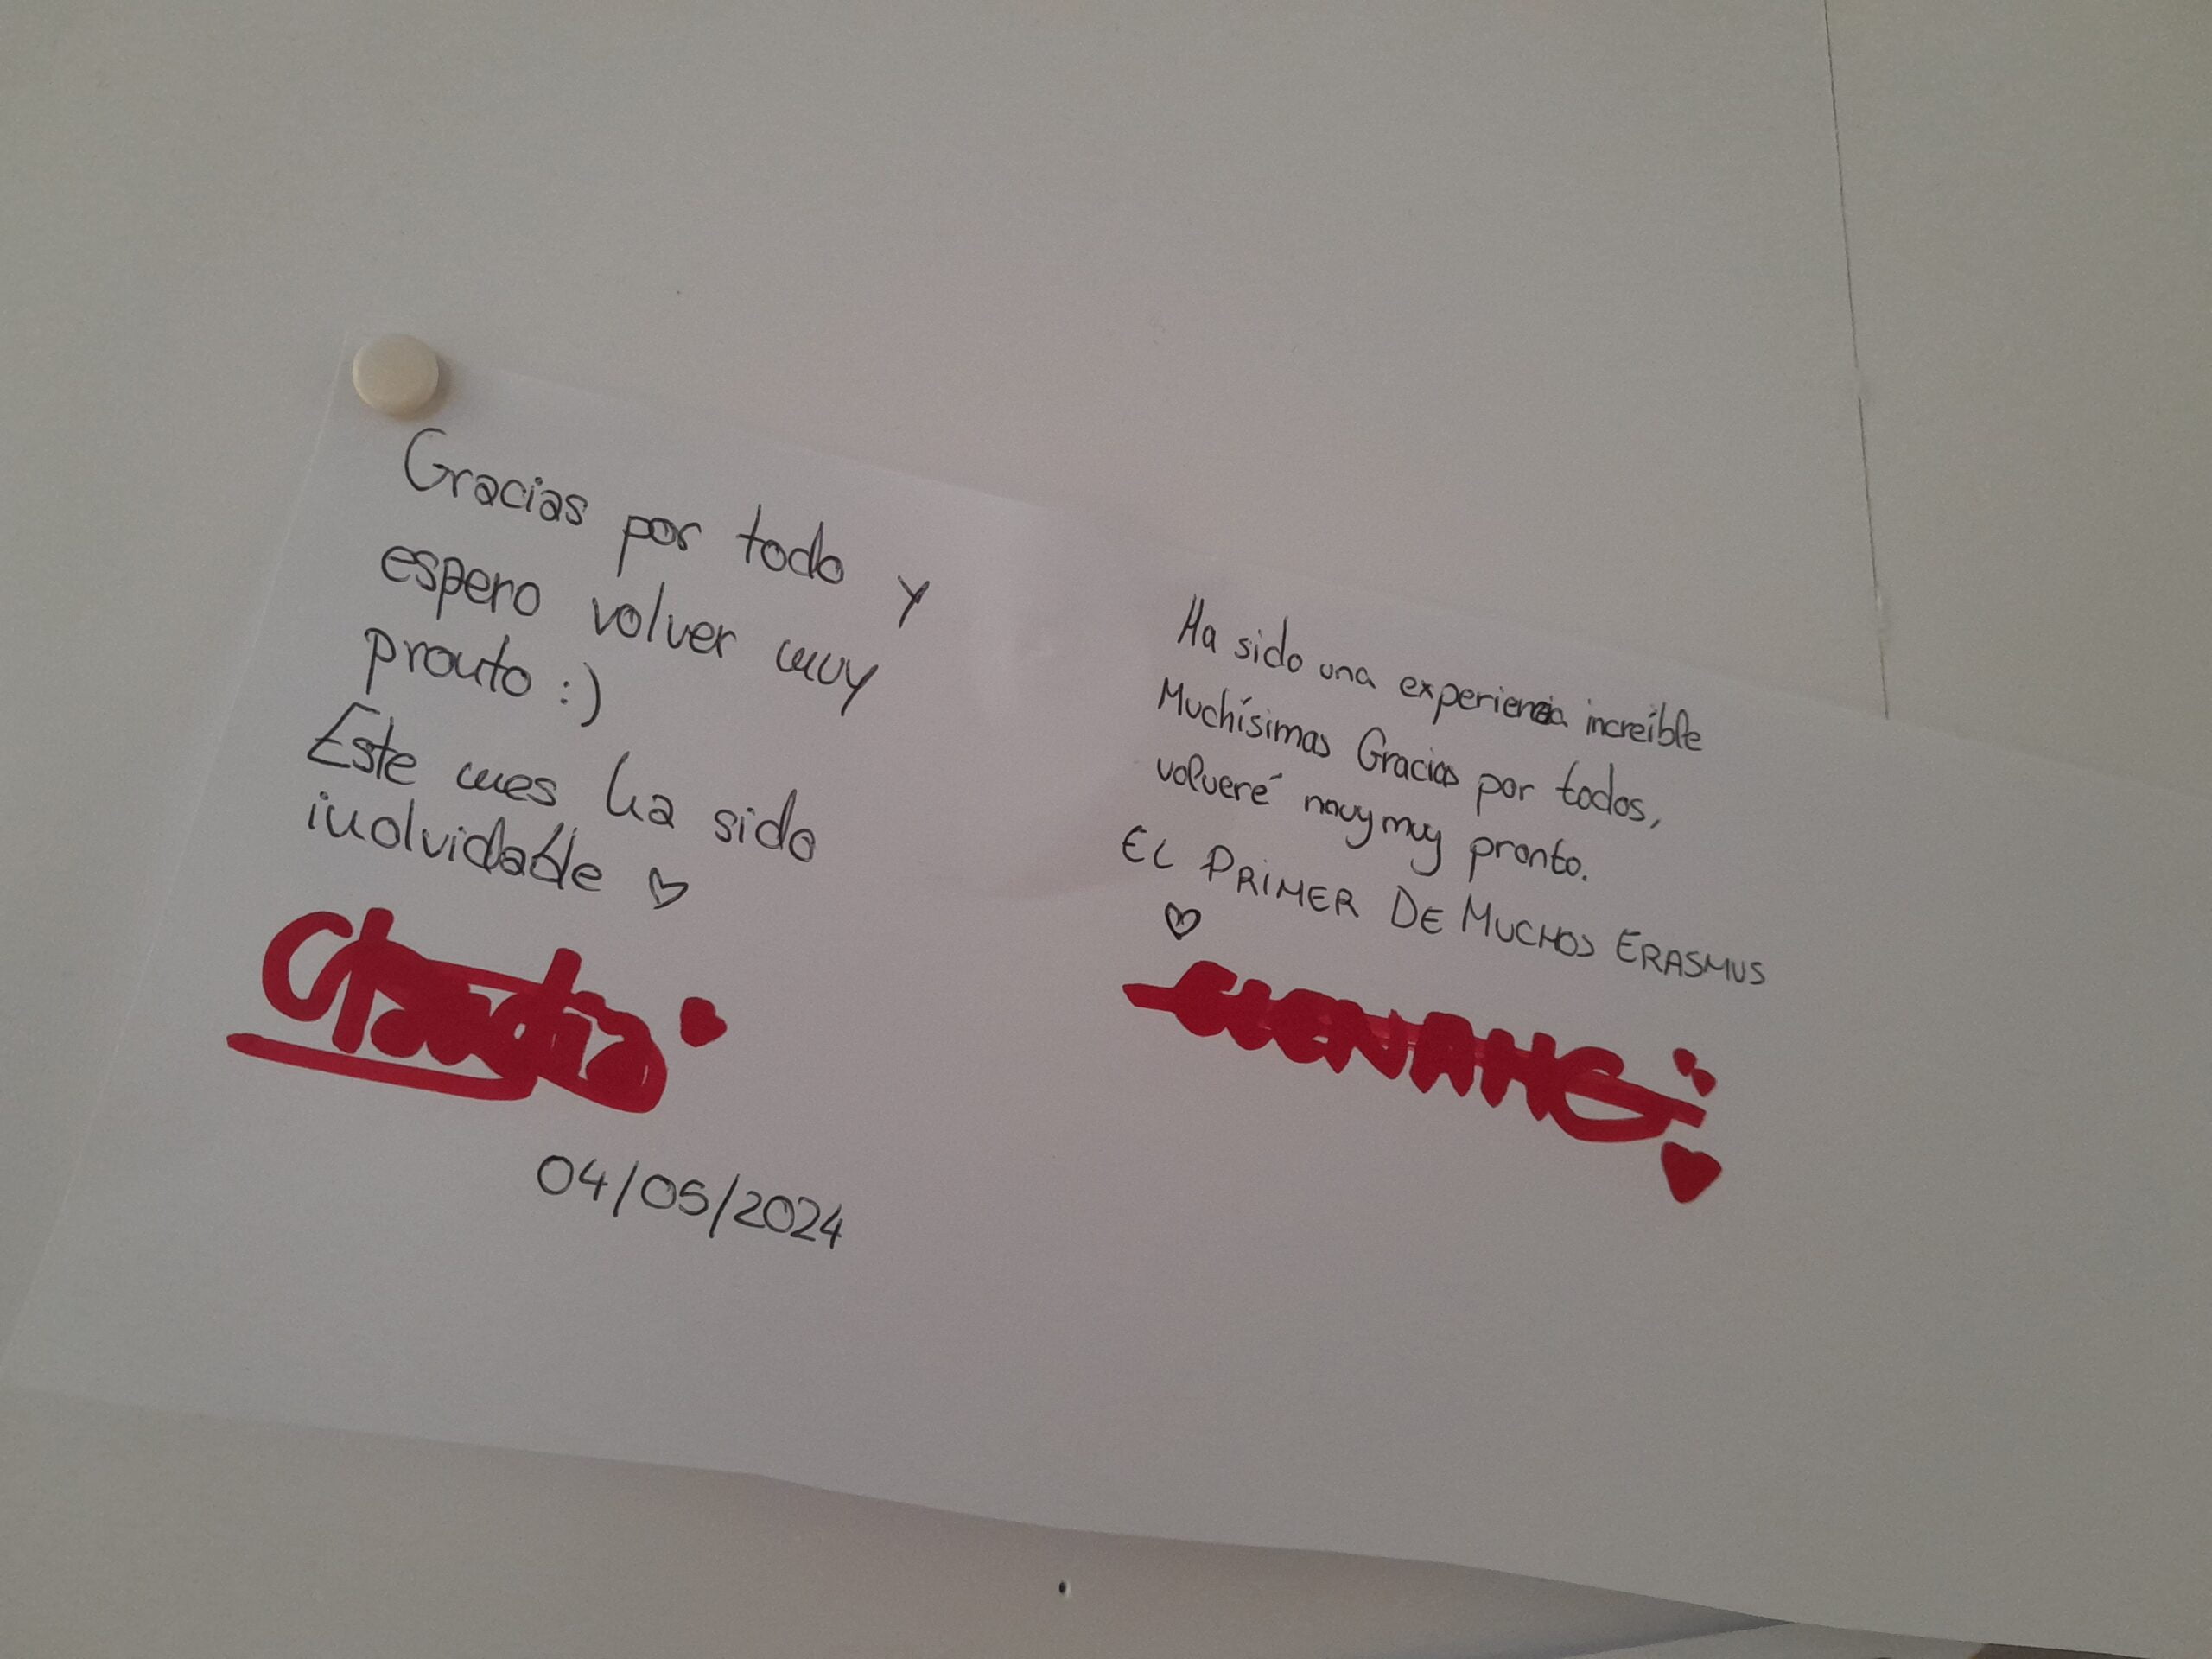 Gracias por todo y
espero volver muy
pronto :)
Este mes ha sido
inolvidable ♡
04/05/2024
Ha sido una experiencia increíble
Muchísimas Gracias por todos,
volveré muy muy pronto.
EL PRIMER DE MUCHOS ERASMUS
♡